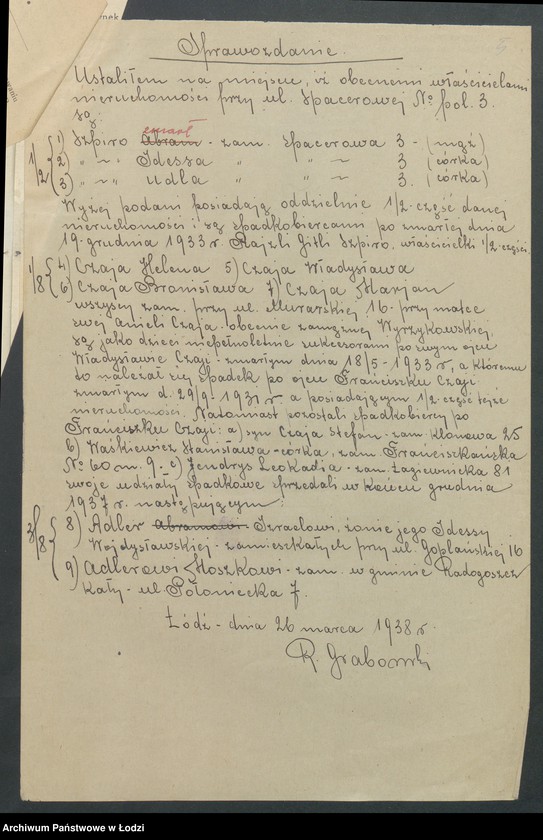 Sprawozdanie.
Ustaliłem na miejscu, iż obecnemi właścicielami
nieruchomości przy ul. Spacerowej № pol. 3.
są:
zmarł
1/2 { 1) Szpiro Abram - zam. Spacerowa 3 - (mąż)
2) " ~ " Idessa " " ~ 3 (córka)
3) " ~ " Udla " " ~ 3. (córka)
Wyżej podani posiadają oddzielnie 1/2 część danej
nieruchomości i są spadkobiercami po zmarłej dnia
19 grudnia 1933 r. Rajzli Gitli Szpiro, właścicielki 1/2 części.
1/8 { 4) Czaja Helena 5) Czaja Władysława
6) Czaja Bronisława 7) Czaja Marjan
wszyscy zam. przy ul. Murarskiej 16. przy matce
swej Anieli Czaja - obecnie zamężnej Wyrzykowskiej,
są jako dzieci niepełnoletnie sukcesorami po swym ojcu
Władysławie Czaji - zmarłym dnia 18/5 - 1933 r, a któremu
to należał się spadek po ojcu Franciszku Czaji
zmarłym d. 29/9 1931 r a posiadającym 1/2 część tejże
nieruchomości. Natomiast pozostali spadkobiercy po
Franciszku Czaji: a) syn Czaja Stefan - zam. Klonowa 25
b) Waśkiewicz Stanisława - córka, zam. Franciszkańska
№ 60 m. 9 - c) Jendrys Leokadia - zam. Łagiewnicka 81
swoje udziały spadkowe sprzedali w końcu grudnia
1937 r. następującym:
3/8 { 8) Adler Abramowi. Izraelowi, żonie jego Idessy
Wojdysławskiej - zamieszkałych przy ul. Goplańskiej 16
9) Adlerowi Moszkowi - zam. w gminie Radogoszcz
Kały - ul. Połaniecka 7.
Łódź - dnia 26 marca 1938 r.
R. Grabowski
Archiwum Państwowe w Łodzi